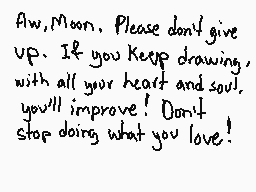 Aw, Moon. Please don't give
up. If you keep drawing,
with all your heart and soul,
you'll improve! Don't
stop doing what you love!